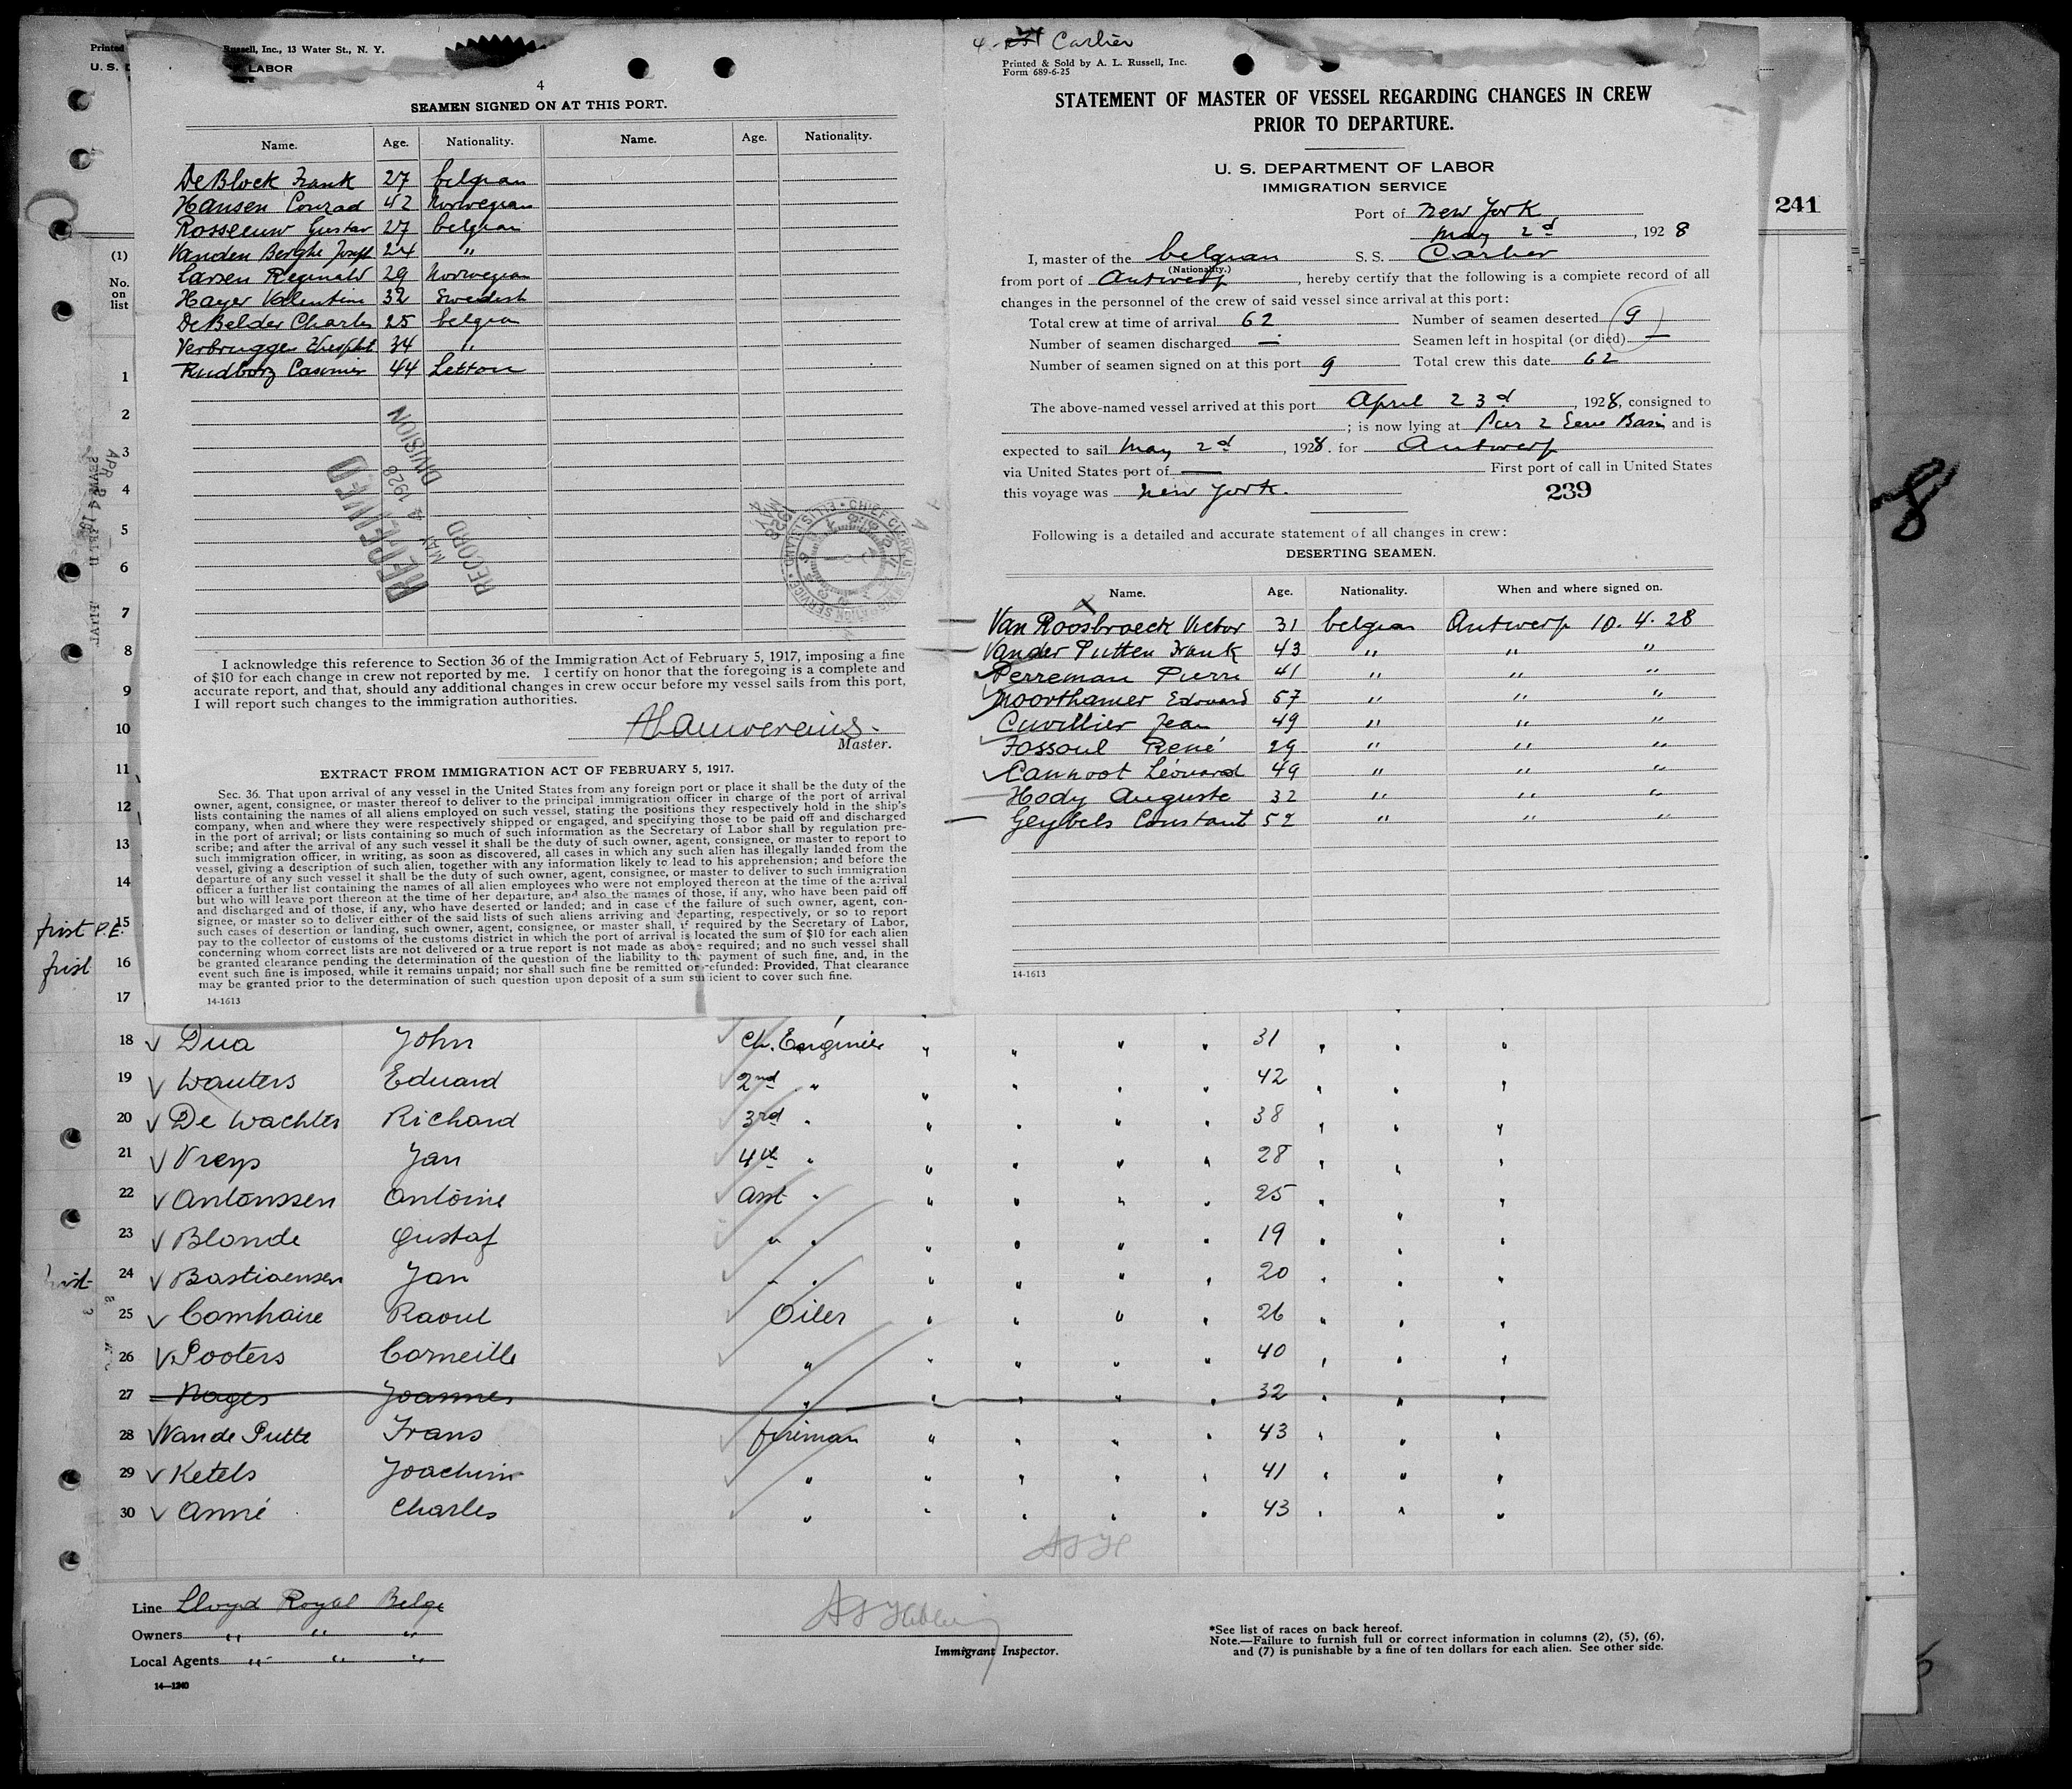 Printed
Russell, Inc., 13 Water St., N. Y.
U. S. D
LABOR
4
SEAMEN SIGNED ON AT THIS PORT.
Name. Age. Nationality. Name. Age. Nationality.
De Block Frank 27 belgian
Hansen Conrad 42 Norwegian
Rosseeuw Gustav 27 belgian
Vanden Berghe Joseph 24 "
Larsen Reginald 29 Norwegian
Hayer Valentine 32 Swedish
De Belder Charles 25 belgian
Verbrugge 34 "
Rudborz Casimir 44 Letton
RECEIVED
MAY 4 1928
RECORD DIVISION
MAY 4 1928
CHIEF CLERK U.S. IMMIGRATION SERVICE ELLIS ISLAND
I acknowledge this reference to Section 36 of the Immigration Act of February 5, 1917, imposing a fine
of $10 for each change in crew not reported by me. I certify on honor that the foregoing is a complete and
accurate report, and that, should any additional changes in crew occur before my vessel sails from this port,
I will report such changes to the immigration authorities.
Master.
EXTRACT FROM IMMIGRATION ACT OF FEBRUARY 5, 1917.
Sec. 36. That upon arrival of any vessel in the United States from any foreign port or place it shall be the duty of the
owner, agent, consignee, or master thereof to deliver to the principal immigration officer in charge of the port of arrival
lists containing the names of all aliens employed on such vessel, stating the positions they respectively hold in the ship's
company, when and where they were respectively shipped or engaged, and specifying those to be paid off and discharged
in the port of arrival; or lists containing so much of such information as the Secretary of Labor shall by regulation pre-
scribe; and after the arrival of any such vessel it shall be the duty of such owner, agent, consignee, or master to report to
such immigration officer, in writing, as soon as discovered, all cases in which any such alien has illegally landed from the
vessel, giving a description of such alien, together with any information likely to lead to his apprehension; and before the
departure of any such vessel it shall be the duty of such owner, agent, consignee, or master to deliver to such immigration
officer a further list containing the names of all alien employees who were not employed thereon at the time of the arrival
but who will leave port thereon at the time of her departure, and also the names of those, if any, who have been paid off
and discharged and of those, if any, who have deserted or landed; and in case of the failure of such owner, agent, con-
signee, or master so to deliver either of the said lists of such aliens arriving and departing, respectively, or so to report
such cases of desertion or landing, such owner, agent, consignee, or master shall, if required by the Secretary of Labor,
pay to the collector of customs of the customs district in which the port of arrival is located the sum of $10 for each alien
concerning whom correct lists are not delivered or a true report is not made as above required; and no such vessel shall
be granted clearance pending the determination of the question of the liability to the payment of such fine, and, in the
event such fine is imposed, while it remains unpaid; nor shall such fine be remitted or refunded: Provided, That clearance
may be granted prior to the determination of such question upon deposit of a sum sufficient to cover such fine.
14-1613
4- Carlier
Printed & Sold by A. L. Russell, Inc.
Form 689-6-25
STATEMENT OF MASTER OF VESSEL REGARDING CHANGES IN CREW
PRIOR TO DEPARTURE.
U. S. DEPARTMENT OF LABOR
IMMIGRATION SERVICE
Port of New York
May 2d, 1928
I, master of the belgian S. S. Carlier
(Nationality.)
from port of Antwerp, hereby certify that the following is a complete record of all
changes in the personnel of the crew of said vessel since arrival at this port:
Total crew at time of arrival 62 Number of seamen deserted 9
Number of seamen discharged — Seamen left in hospital (or died) —
Number of seamen signed on at this port 9 Total crew this date 62
The above-named vessel arrived at this port April 23d, 1928, consigned to
; is now lying at Pier 2 Erie Basin and is
expected to sail May 2d, 1928. for Antwerp
via United States port of — First port of call in United States
this voyage was New York.
239
Following is a detailed and accurate statement of all changes in crew:
DESERTING SEAMEN.
Name. Age. Nationality. When and where signed on.
Van Roosbroeck Victor 31 belgian Antwerp 10. 4. 28
Vander Putten Frank 43 " " "
Perreman Pierre 41 " " "
Moorthamer Edouard 57 " " "
Cuvillier Jean 49 " " "
Fossoul René 29 " " "
Cannoot Léonard 49 " " "
Hody Auguste 32 " " "
Geybels Constant 52 " " "
14-1613
241
8
(1)
No.
on
list
1
2
3
4
5
6
7
8
9
10
11
12
13
14
first P.E. 15
first 16
17
18 Dua John Ch. Engineer " " " " 31 " " "
19 Wauters Eduard 2nd " " " " " 42 " " "
20 De Wachter Richard 3rd " " " " " 38 " " "
21 Vreys Jan 4th " " " " " 28 " " "
22 Antonssen Antoine asst " " " " " 25 " " "
23 Blonde Gustaf " " " " " " 19 " " "
24 Bastiaensen Jan " " " " " " 20 " " "
25 Comhaire Raoul Oiler " " " " 26 " " "
26 Pooters Corneille " " " " " 40 " " "
27 Nages Joannes " " " " " 32 " " "
28 Van de Putte Frans fireman " " " " 43 " " "
29 Ketels Joachim " " " " " 41 " " "
30 Anné Charles " " " " " 43 " " "
Line Lloyd Royal Belge
Owners " " "
Local Agents " " "
14—1240
Immigrant Inspector.
*See list of races on back hereof.
Note.—Failure to furnish full or correct information in columns (2), (5), (6),
and (7) is punishable by a fine of ten dollars for each alien. See other side.